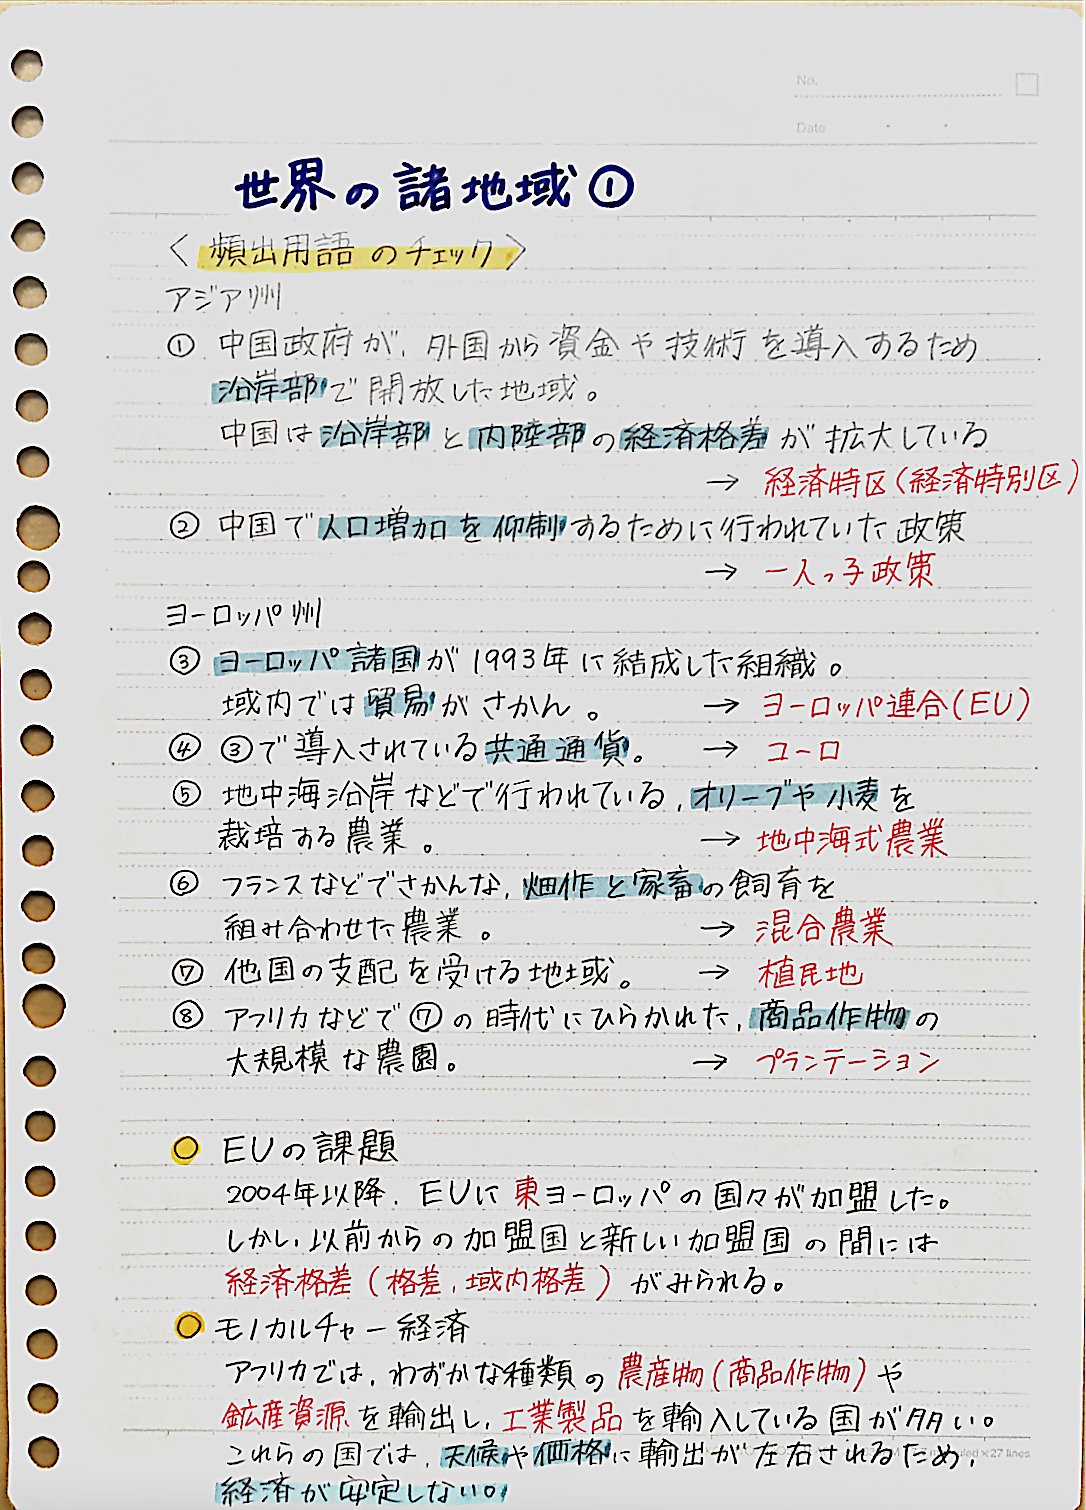 No.
Date
世界の諸地域①
〈頻出用語のチェック〉
アジア州
① 中国政府が、外国から資金や技術を導入するため
沿岸部で開放した地域。
中国は沿岸部と内陸部の経済格差が拡大している
→ 経済特区(経済特別区)
② 中国で人口増加を抑制するために行われていた政策
→ 一人っ子政策
ヨーロッパ州
③ ヨーロッパ諸国が1993年に結成した組織。
域内では貿易がさかん。 → ヨーロッパ連合(EU)
④ ③で導入されている共通通貨。 → ユーロ
⑤ 地中海沿岸などで行われている、オリーブや小麦を
栽培する農業。 → 地中海式農業
⑥ フランスなどでさかんな、畑作と家畜の飼育を
組み合わせた農業。 → 混合農業
⑦ 他国の支配を受ける地域。 → 植民地
⑧ アフリカなどで⑦の時代にひらかれた、商品作物の
大規模な農園。 → プランテーション
EUの課題
2004年以降、EUに東ヨーロッパの国々が加盟した。
しかし、以前からの加盟国と新しい加盟国の間には
経済格差(格差、域内格差)がみられる。
モノカルチャー経済
アフリカでは、わずかな種類の農産物(商品作物)や
鉱産資源を輸出し、工業製品を輸入している国が多い。
これらの国では、天候や価格に輸出が左右されるため、
×27 lines
経済が安定しない。